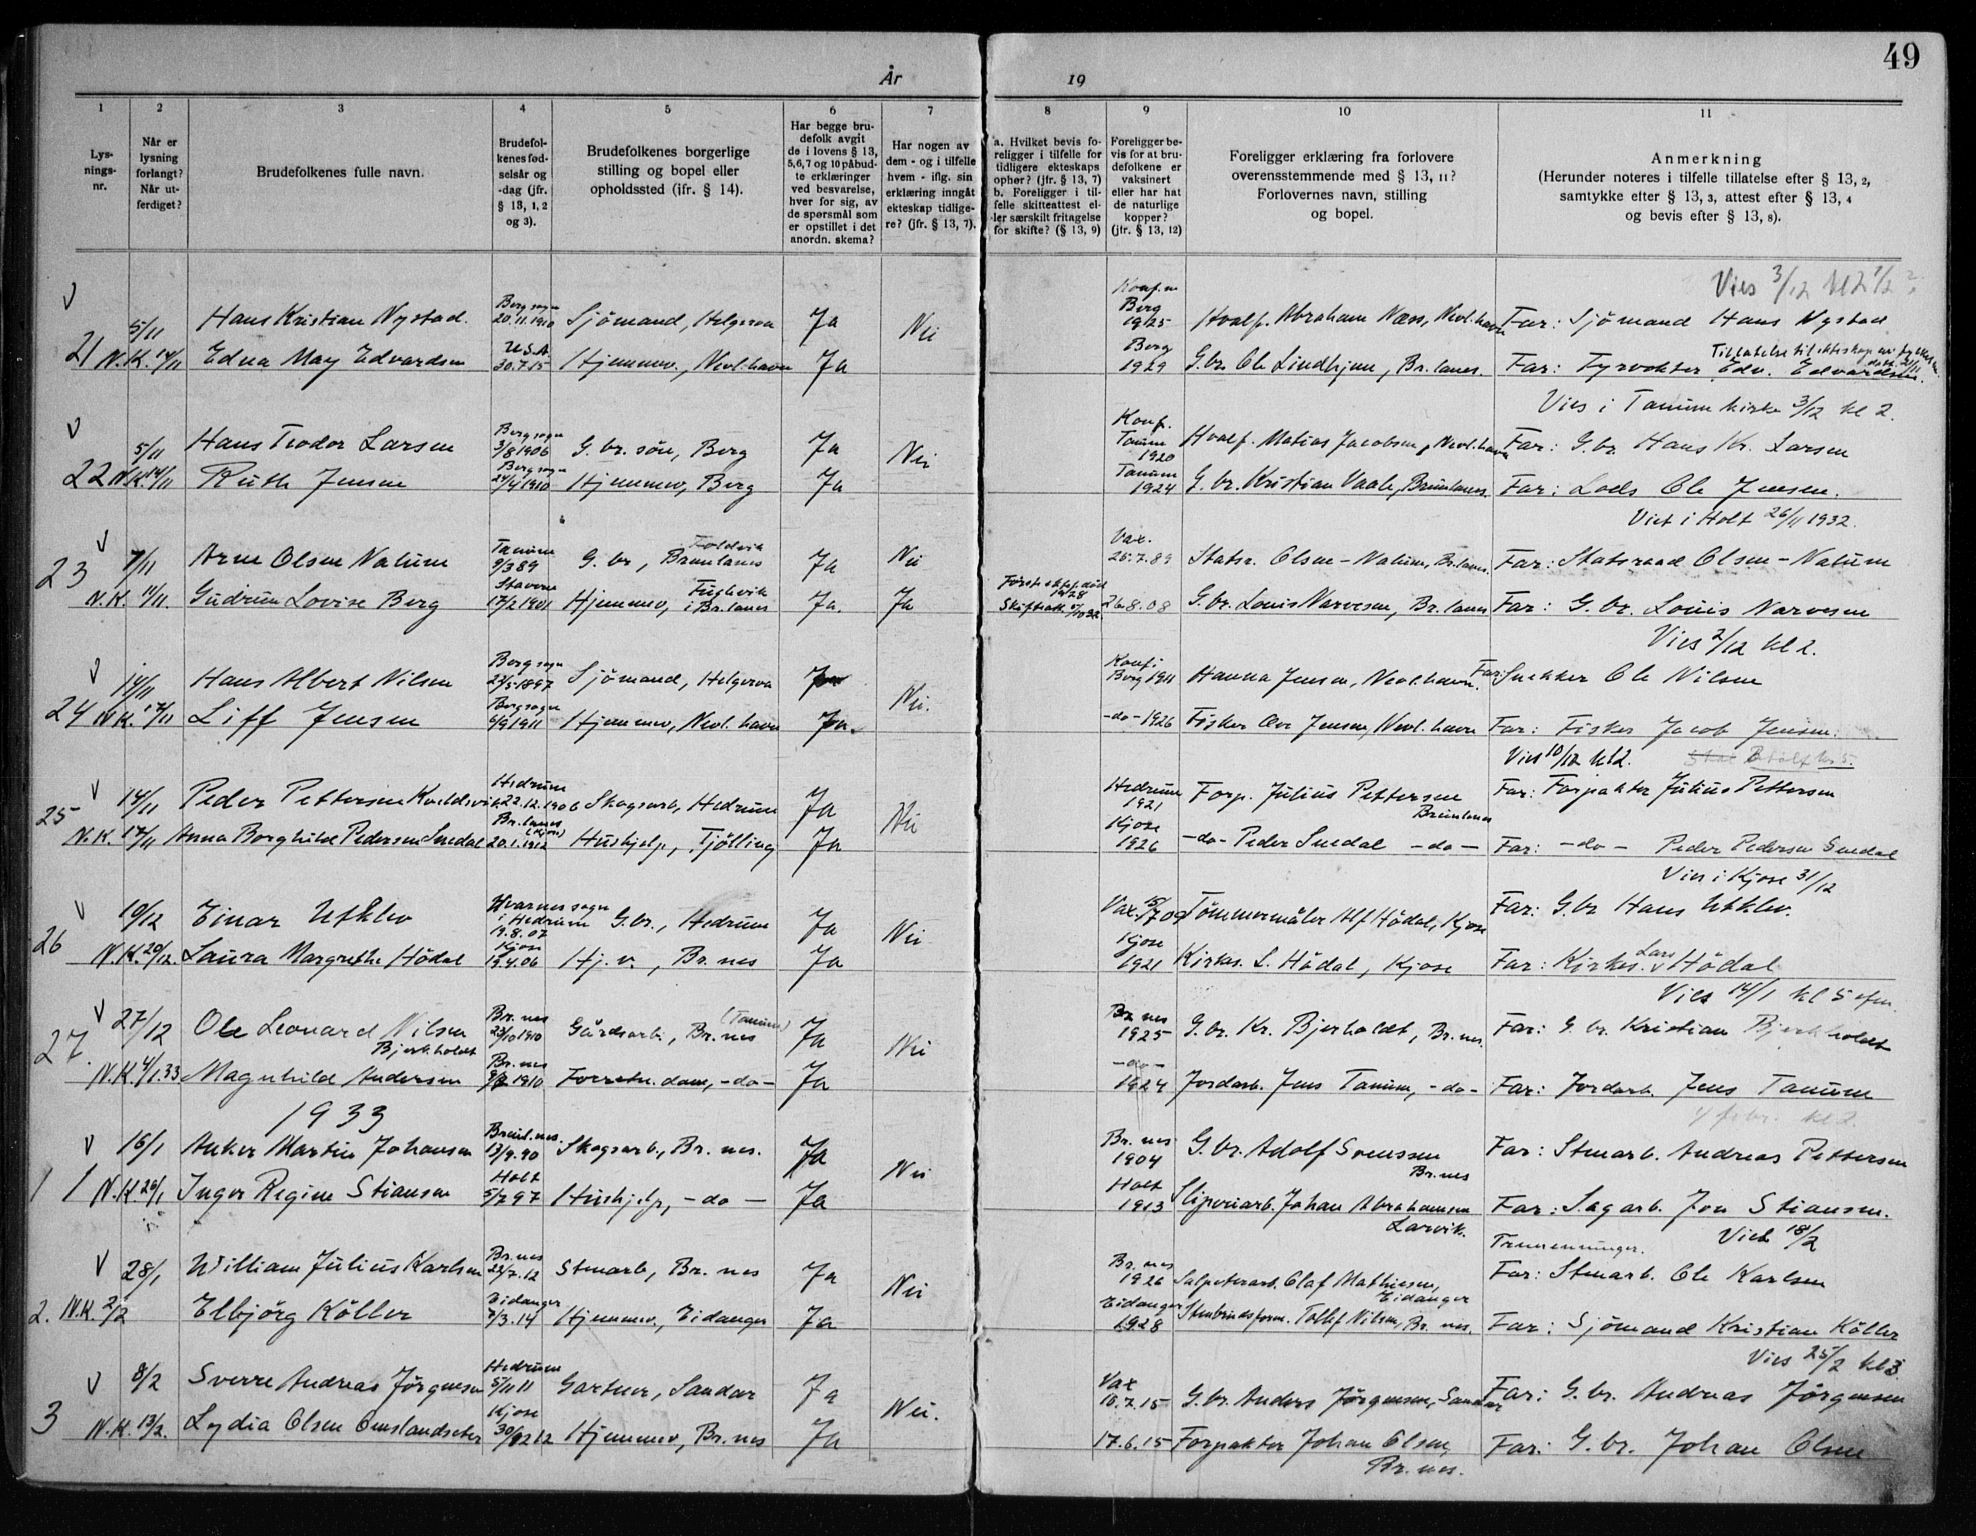 49
År
19
1
2
3
4
5
6
7
8
9
10
11
Lys-
nings-
nr.
Når er
lysning
forlangt?
Når ut-
ferdiget?
Brudefolkenes fulle navn.
Brudefol-
kenes fød-
selsår og
-dag (jfr.
§ 13, 1, 2
og 3).
Brudefolkenes borgerlige
stilling og bopel eller
opholdssted (ifr. § 14).
Har begge bru-
defolk avgit
de i lovens § 13,
5,6,7 og 10 påbud-
te erklæringer
ved besvarelse,
hver for sig, av
de spørsmål som
er opstillet i det
anordn. skema?
Har nogen av
dem - og i tilfelle
hvem - iflg. sin
erklæring inngåt
ekteskap tidlige-
re? (jfr. § 13, 7).
a. Hvilket bevis fo-
religger i tilfelle for
tidligere ekteskaps
ophør? (jfr. § 13, 7)
b. Foreligger i til-
felle skifteattest el-
ler særskilt fritagelse
for skifte? (§ 13, 9)
Foreligger be-
vis for at bru-
defolkene er
vaksinert
eller har hat
de naturlige
kopper?
(jfr. § 13, 12)
Foreligger erklæring fra forlovere
overensstemmende med § 13, 11?
Forlovernes navn, stilling
og bopel.
Anmerkning
(Herunder noteres i tilfelle tillatelse efter § 13, 2,
samtykke efter § 13, 3, attest efter § 13, 4
og bevis efter § 13, 8).
Vies 3/12 kl 2 1/2
V 5/11 Hans Kristian Nystad. Berg sogn 20.11.1910 Sjömand, Helgeroa Ja Nei Konf. Berg 1925 Hvalf. Abraham Næss, Nevl.havn Far: Sjömand Hans Nystad
21 N.K. 14/11 Edna May Edvardsen U.S.A. 30.7.15 Hjemmev., Nevl.havn Ja Berg 1929 G.br. Ole Lindhjem, Br.lanes. Far: Fyrvokter Edv. Edvardsen.
Vies i Tanum kirke 3/12 kl 2.
V 5/11 Hans Teodor Larsen Berg sogn 3/8 1906 G. br. sön, Berg Ja Nei Konf. Tanum 1920 Hvalf. Matias Jacobsen, Nevl.havn Far: G.br. Hans Kr. Larsen
22 N.K. 14/11 Ruth Jensen Berg sogn 24/4 1910 Hjemmev, Berg Ja Tanum 1924 G. br. Kristian Vaale, Brunlanes. Far: Lods Ole Jensen.
Viet i Holt 26/11 1932.
V 7/11 Arne Olsen Nalum Tanum 9/3 89 G. br, Brunlanes Ja Nei Vax. 25.7.89 Statsr. Olsen-Nalum, Br.lanes. Far: Statsraad Olsen-Nalum
23 N.K. 11/11. Gudrun Lovise Berg Stavern 17/2 1901 Hjemmev, i Br.lanes Ja. Ja 26.8.08 G.br. Louis Narvesen, Br.lanes Far: G. br. Louis Narvesen
Vies 2/12 kl 2.
V 14/11 Hans Albert Nilsen Berg sogn 23/5 1897 Sjömand, Helgeroa Ja Nei. Konf i Berg 1911 Hanna Jensen, Nevl.havn. Far: Snekker Ole Nilsen
24 N.K. 17/11 Liff Jensen Berg sogn 6/9 1911 Hjemmev, Nevl. havn Ja. -do- 1926 Fisker Ove Jensen, Nevl. havn Far: Fisker Jacob Jensen.
Vies 10/12 kl 2.
V 14/11 Peder Pettersen Hedrum 22.12.1906 Skogsarb, Hedrum Ja Nei Hedrum 1921 Forp. Julius Pettersen Brunlanes Far: Forpakter Julius Pettersen
25 N.K. 17/11 Anna Borghild Pedersen Snedal Br.lanes (Kjose) 20.1.1912 Hushjelp, Tjölling Ja Kjose 1926 -do- Peder Snedal -do- Far: -do- Peder Pedersen Snedal
Vies i Kjose 31/12
V 19/12 Einar Utklev Hvarnes sogn i Hedrum 19.8.07 G.br., Hedrum Ja Nei Vax. Tömmermåler Alf Hödal, Kjose Far: G.br Hans Utklev.
26 N.K. 20/12. Laura Margrethe Hödal Kjose 19.4.06 Hj.v., Br.nes Ja Kjose 1921 Kirkes. L. Hödal, Kjose Far: Kirkes. Lars Hödal
Vies 14/1 kl 5 efm.
V 27/12 Ole Leonard Nilsen Bjerkholdt Br.nes 23/10 1910 Gårdsarb, Br.nes (Tanum) Ja Nei Br.nes 1925 G.br. Kr. Bjerholdt, Br.nes. Far: G. br. Kristian Bjerkholdt
27. N.K. 4/1.33 Magnhild Andersen Br.nes 1910 Forretn.dame, -do- Ja -do- 1924 Jordarb. Jens Tanum, -do- Far: Jordarb. Jens Tanum
1933
V 16/1 Anker Martin Johansen Brunl.nes. 13/9.90 Skogsarb., Br.nes. Ja Nei Br.nes 1904 G.br. Adolf Svenssen Br.nes Far: Stenarb. Andreas Pettersen
1 N.K. 26/1 Inger Regine Stiansen Holt 5/2 97 Hushjelp, -do- Ja Holt 1913 Sliperiarb. Johan Abrahamsen Larvik. Far: Sagarb. Jon Stiansen.
Viet 18/2
V 28/1 William Julius Karlsen Br.nes 22/7.12 Stenarb, Br.nes Ja Nei Br.nes 1926 Salpeterarb. Olaf Mathisen, Eidanger Far: Stenarb. Ole Karlsen
2. N.K. 2/2 Elbjörg Köller Eidanger 7/3.14 Hjemmev, Eidanger Ja Eidanger 1928 Tollef Nilsen, Br.nes. Far: Sjömand Kristian Köller
Vies 25/2 kl 3
V 8/2 Sverre Andreas Jörgensen Hedrum 5/11 11 Gartner, Sandar Ja Nei. Vax 10.7.15 G.br. Anders Jörgensen, Sandar Far: G. br. Andreas Jörgensen
3 N.K. 13/2. Lydia Olsen Omslandseter Kjose 30/12 12 Hjemmev, Br.nes Ja 17.6.15 Forpakter Johan Olsen, Br.nes. Far: G. br. Johan Olsen